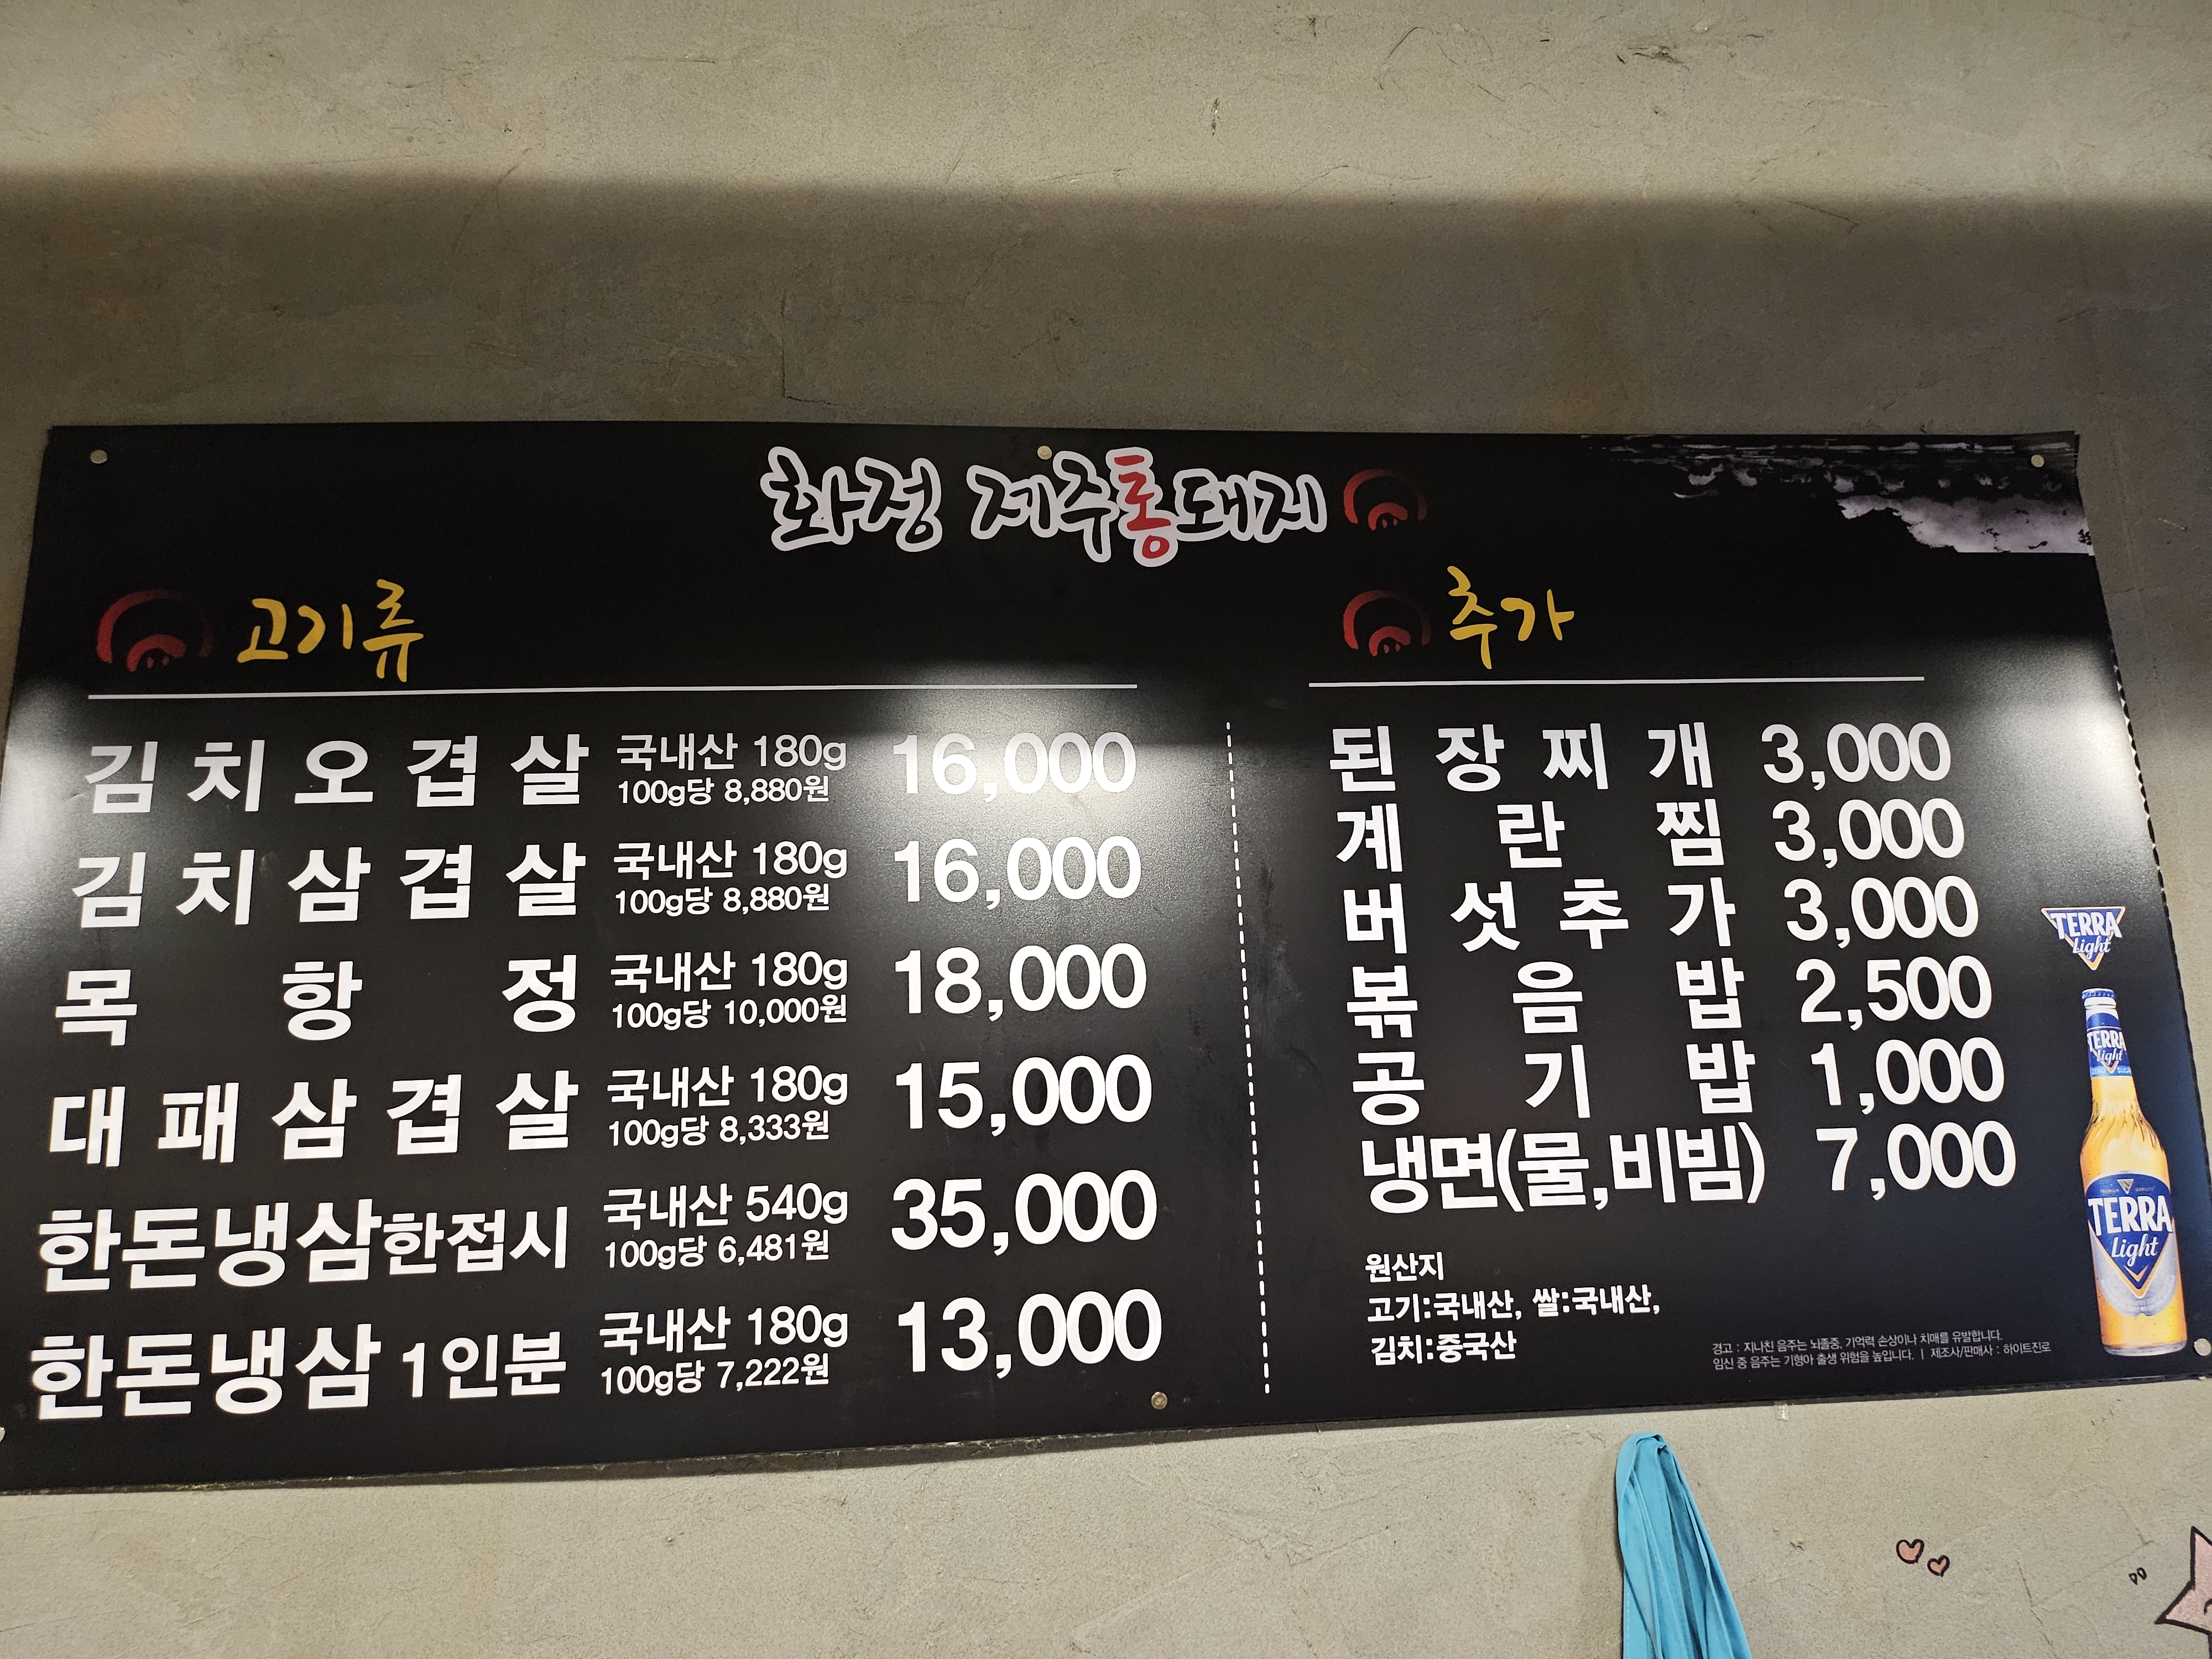 화정 제주통돼지
고기류
김치오겹살 국내산 180g 100g당 8,880원 16,000
김치삼겹살 국내산 180g 100g당 8,880원 16,000
목항정 국내산 180g 100g당 10,000원 18,000
대패삼겹살 국내산 180g 100g당 8,333원 15,000
한돈냉삼한접시 국내산 540g 100g당 6,481원 35,000
한돈냉삼 1인분 국내산 180g 100g당 7,222원 13,000
추가
된장찌개 3,000
계란찜 3,000
버섯추가 3,000
볶음밥 2,500
공기밥 1,000
냉면(물,비빔) 7,000
원산지
고기:국내산, 쌀:국내산,
김치:중국산
TERRA
Light
TERRA
Light
TERRA
Light
경고 : 지나친 음주는 뇌졸중, 기억력 손상이나 치매를 유발합니다.
임신 중 음주는 기형아 출생 위험을 높입니다. | 제조사/판매사 : 하이트진로